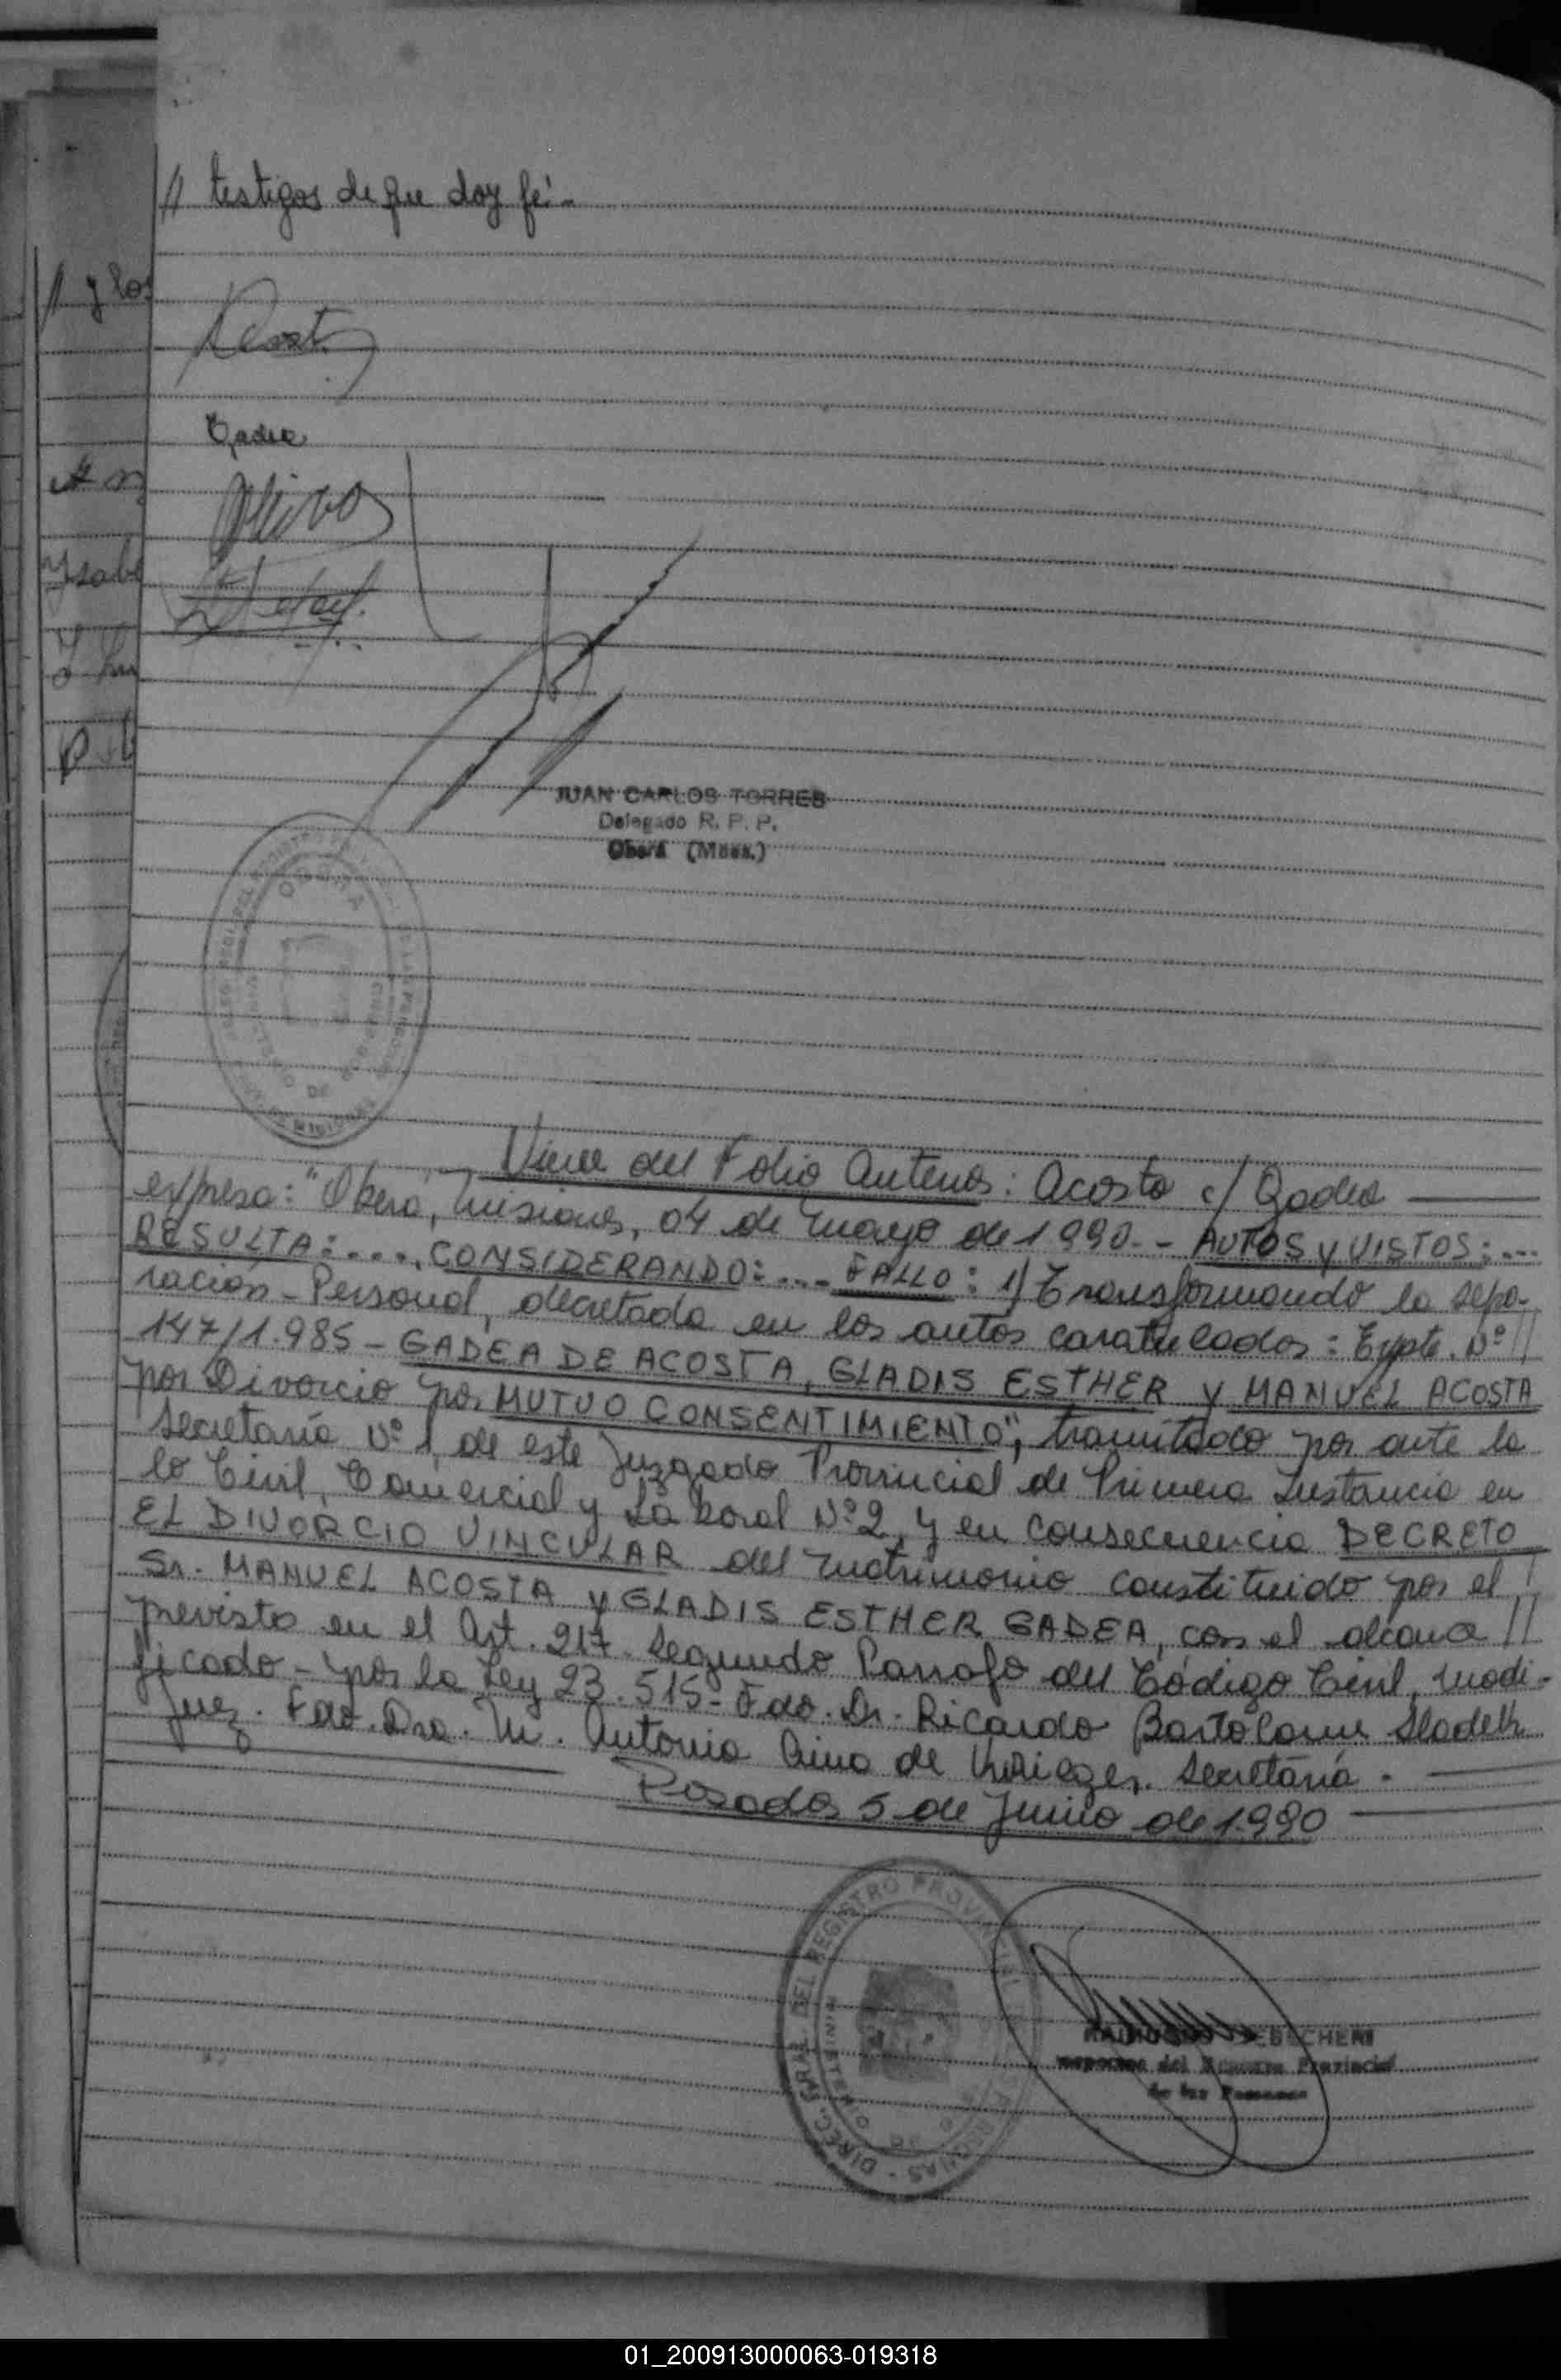 // testigos de que doy fé.-
// y los
Acosta
Gadea
Olivos
Ysabe
JUAN CARLOS TORRES
Delegado R. P. P.
Oberá (Mnes.)
OBERA
Viene del Folio Anterior: Acosta c/ Gadea
expresa: "Oberá, Misiones, 04 de mayo de 1990.- AUTOS y VISTOS: ...
RESULTA: ...., CONSIDERANDO: .... FALLO: 1) Transformando la sepa-
ración - Personal, decretada en los autos caratulados: Expte. Nº //
147/1.985 - GADEA DE ACOSTA, GLADIS ESTHER y MANUEL ACOSTA
por Divorcio por MUTUO CONSENTIMIENTO", tramitado por ante la
Secretaría Nº 1, de este Juzgado Provincial de Primera Instancia en
lo Civil, Comercial y Laboral Nº 2, y en consecuencia DECRETO
EL DIVORCIO VINCULAR del matrimonio constituido por el /
Sr. MANUEL ACOSTA y GLADIS ESTHER GADEA, con el alcance //
previsto en el Art. 217. Segundo Parrafo del Código Civil, modi-
ficado - por la Ley 23.515 - Fdo. Dr. Ricardo Bartolome
Juez. Fdo. Dra. M. Antonia de Secretaria.
Posadas 5 de Junio de 1.990
DIREC. GRAL. DEL REGISTRO PROVINCIAL DE LAS PERSONAS
MINISTERIO DE
RAIMUNDO
Inspector del Registro Provincial
de las Personas
01_200913000063-019318